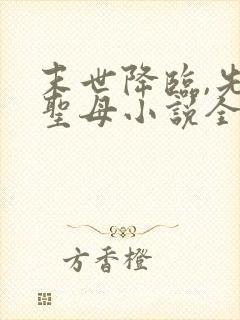 末世降臨,先
聖母小說全
方香橙